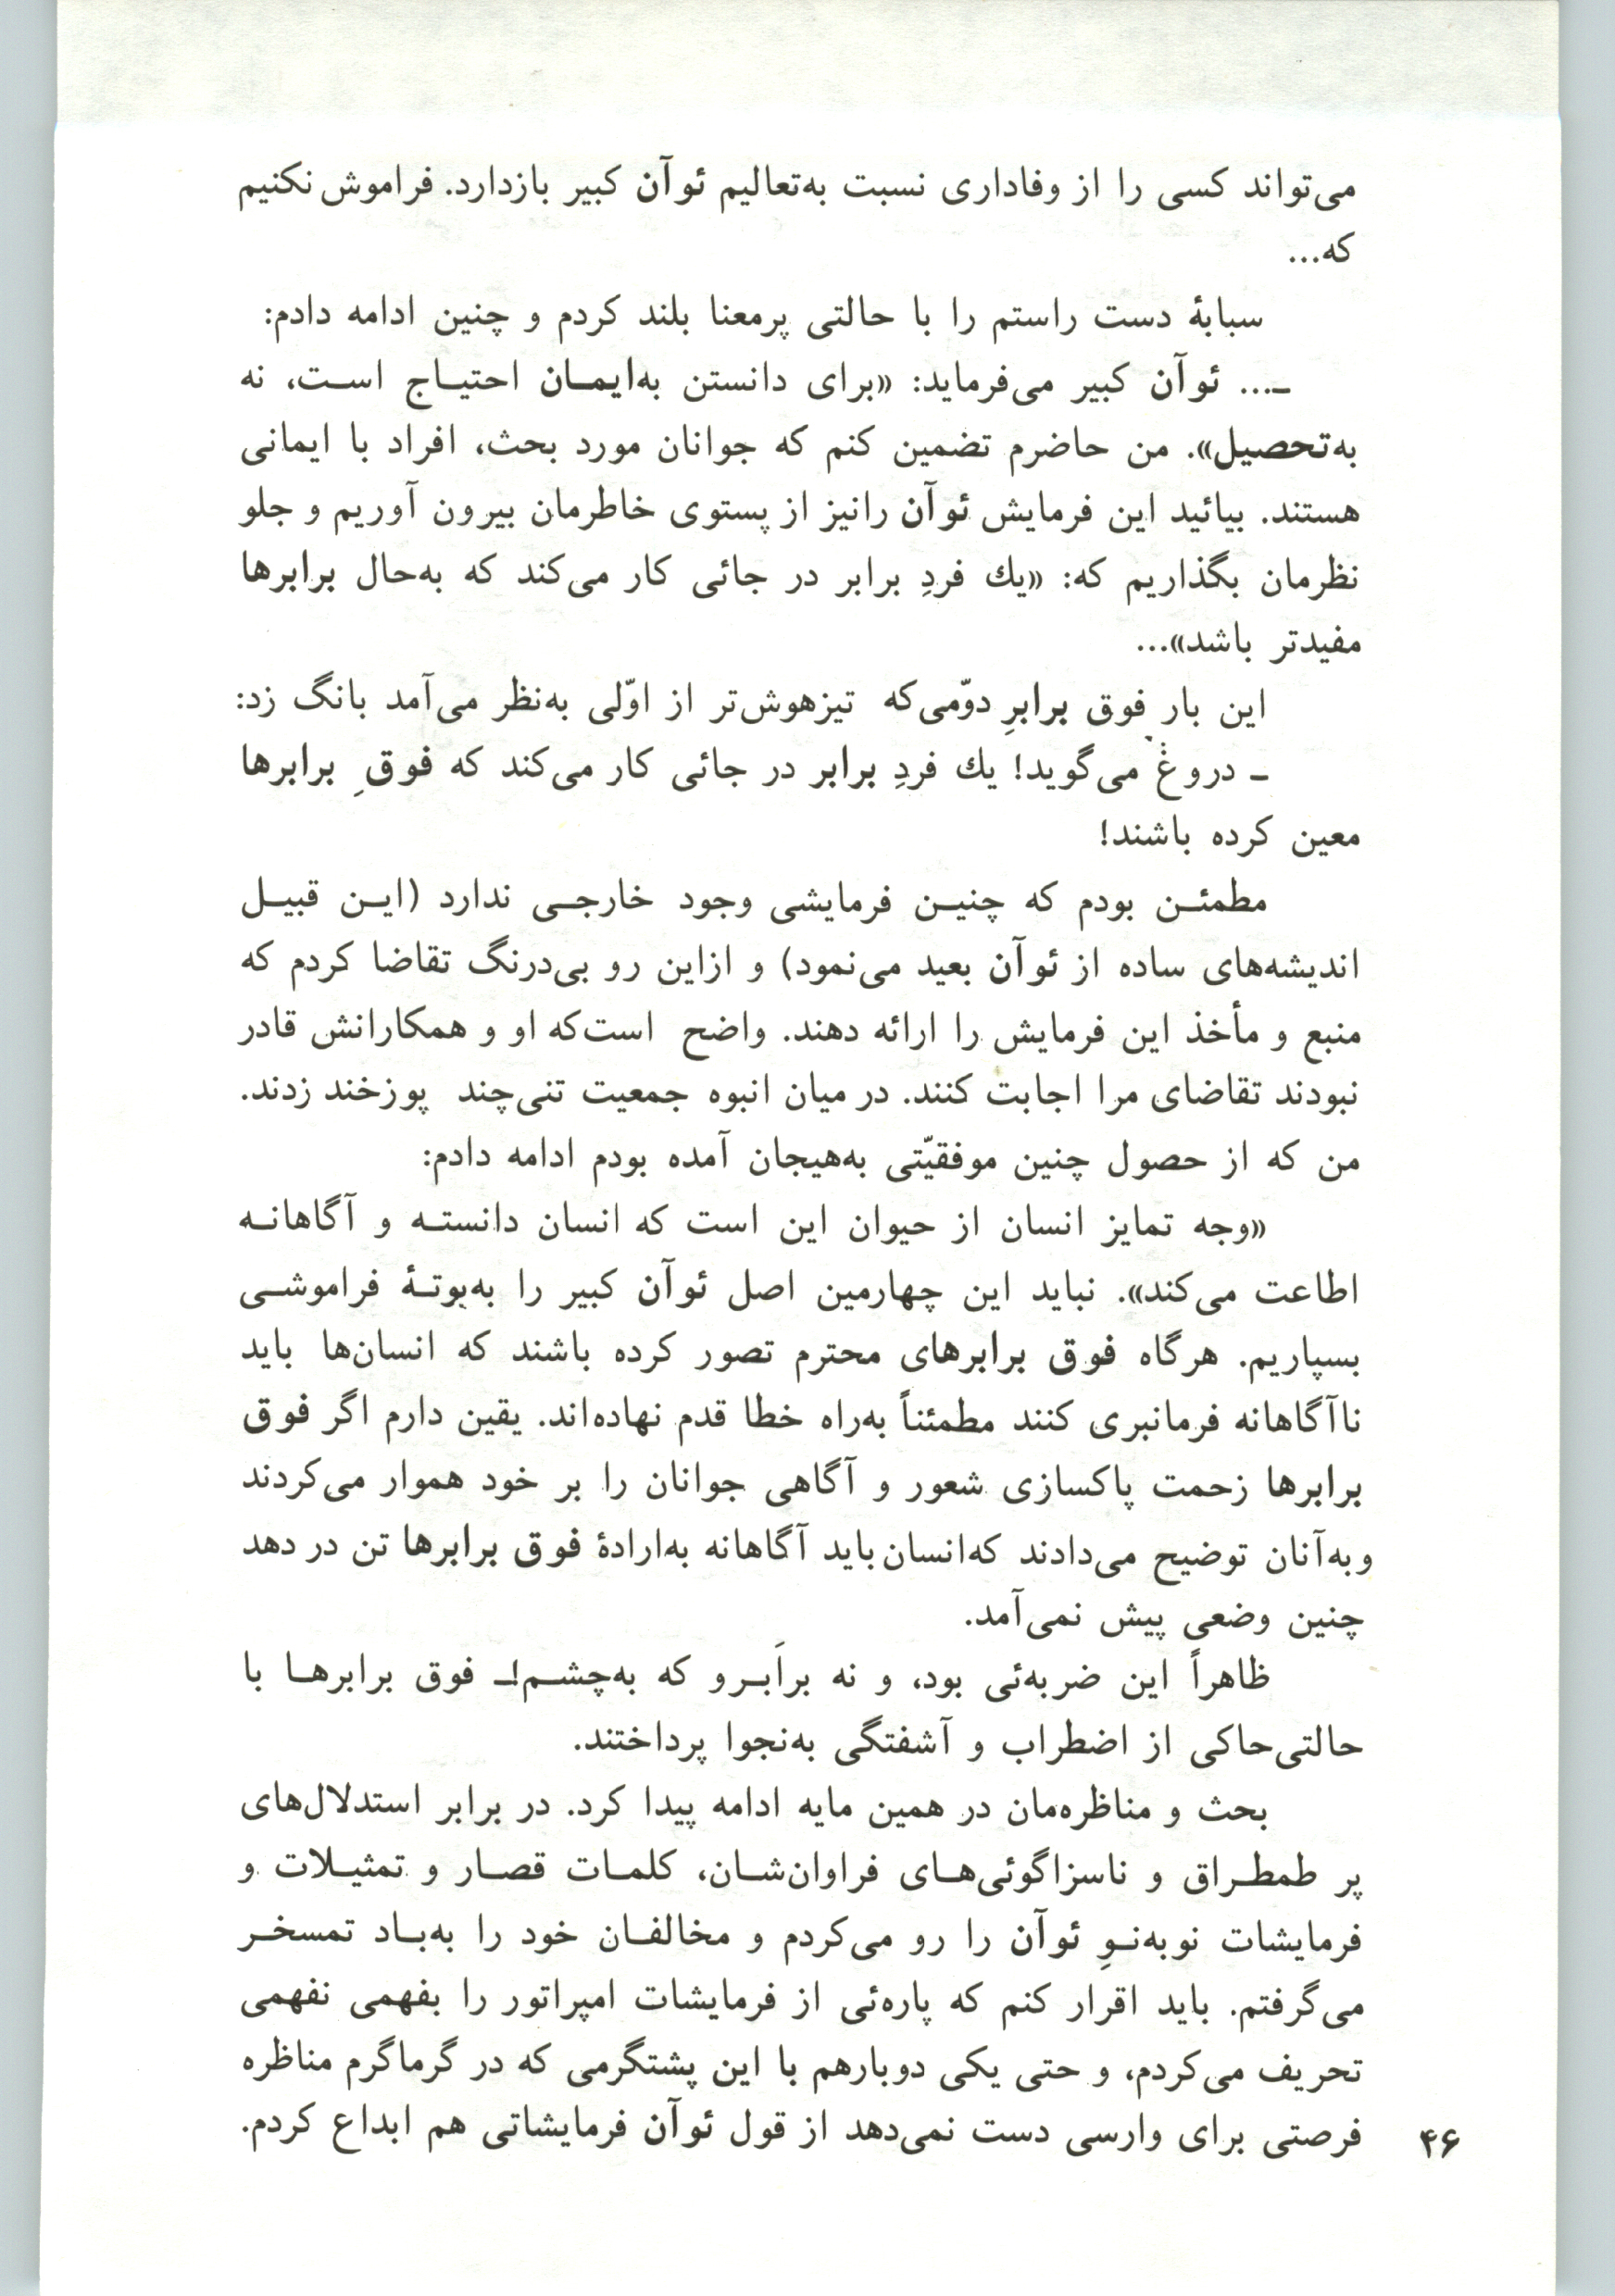 می‌تواند کسی را از وفاداری نسبت به‌تعالیم ئوآن کبیر بازدارد. فراموش نکنیم
که...
سبابهٔ دست راستم را با حالتی پرمعنا بلند کردم و چنین ادامه دادم:
ـ... ئوآن کبیر می‌فرماید: «برای دانستن به‌ایمـان احتیـاج اسـت، نه
به‌تحصیل». من حاضرم تضمین کنم که جوانان مورد بحث، افراد با ایمانی
هستند. بیائید این فرمایش ئوآن رانیز از پستوی خاطرمان بیرون آوریم و جلو
نظرمان بگذاریم که: «یك فردِ برابر در جائی کار می‌کند که به‌حال برابرها
مفیدتر باشد»...
این بار فوق برابرِ دوّمی‌که تیزهوش‌تر از اوّلی به‌نظر می‌آمد بانگ زد:
ـ دروغ می‌گوید! یك فردِ برابر در جائی کار می‌کند که فوقِ برابرها
معین کرده باشند!
مطمئـن بودم که چنیـن فرمایشی وجود خارجـی ندارد (ایـن قبیـل
اندیشه‌های ساده از ئوآن بعید می‌نمود) و ازاین رو بی‌درنگ تقاضا کردم که
منبع و مأخذ این فرمایش را ارائه دهند. واضح است‌که او و همکارانش قادر
نبودند تقاضای مرا اجابت کنند. در میان انبوه جمعیت تنی‌چند پوزخند زدند.
من که از حصول چنین موفقیّتی به‌هیجان آمده بودم ادامه دادم:
«وجه تمایز انسان از حیوان این است که انسان دانستـه و آگاهانـه
اطاعت می‌کند». نباید این چهارمین اصل ئوآن کبیر را به‌بوتـهٔ فراموشـی
بسپاریم. هرگاه فوق برابرهای محترم تصور کرده باشند که انسان‌ها باید
ناآگاهانه فرمانبری کنند مطمئناً به‌راه خطا قدم نهاده‌اند. یقین دارم اگر فوق
برابرها زحمت پاکسازی شعور و آگاهی جوانان را بر خود هموار می‌کردند
وبه‌آنان توضیح می‌دادند که‌انسان باید آگاهانه به‌ارادهٔ فوق برابرها تن در دهد
چنین وضعی پیش نمی‌آمد.
ظاهراً این ضربه‌ئی بود، و نه براَبـرو که به‌چشـم!ـ فوق برابرهـا با
حالتی‌حاکی از اضطراب و آشفتگی به‌نجوا پرداختند.
بحث و مناظره‌مان در همین مایه ادامه پیدا کرد. در برابر استدلال‌های
پر طمطـراق و ناسزاگوئی‌هـای فراوان‌شـان، کلمـات قصـار و تمثیـلات و
فرمایشات نوبه‌نـوِ ئوآن را رو می‌کردم و مخالفـان خود را به‌بـاد تمسخـر
می‌گرفتم. باید اقرار کنم که پاره‌ئی از فرمایشات امپراتور را بفهمی نفهمی
تحریف می‌کردم، و حتی یکی دوبارهم با این پشتگرمی که در گرماگرم مناظره
فرصتی برای وارسی دست نمی‌دهد از قول ئوآن فرمایشاتی هم ابداع کردم.
۴۶